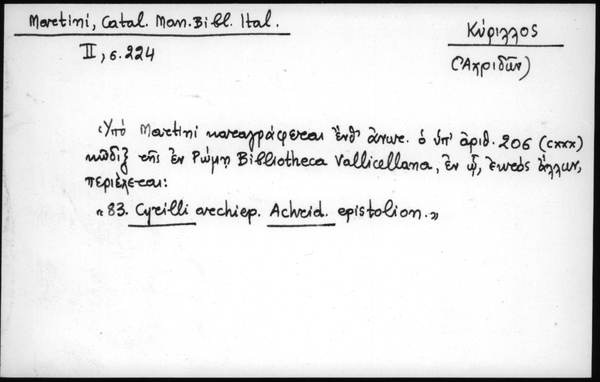 Martini, Catal. Man. Bibl. Ital.
II, σ. 224
Κύριλλος
(Ἀχριδῶν)
Ὑπὸ Martini καταγράφεται ἔνθ' ἀνωτ. ὁ ὑπ' ἀριθ. 206 (CXXX)
κῶδιξ τῆς ἐν Ρώμῃ Bibliotheca Vallicellana, ἐν ᾧ, ἐκτὸς ἄλλων,
περιέχεται:
«83. Cyrilli archiep. Achrid. epistolion.»